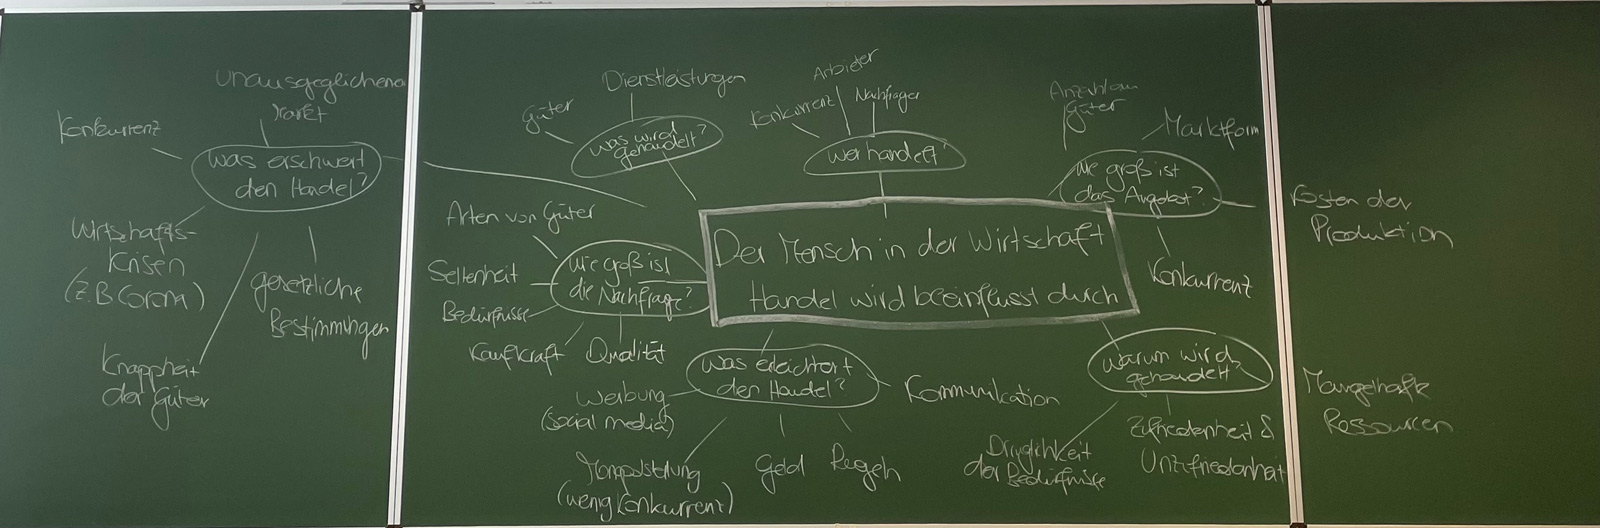 unausgeglichener
Markt
Konkurrenz
was erschwert
den Handel?
Wirtschafts-
krisen
(z.B Corona)
gesetzliche
Bestimmungen
Knappheit
der Güter
Dienstleistungen
Güter
was wird
gehandelt?
Arbeiter
Konkurrenz
Nachfrager
wer handelt?
Anzahl an
Güter
Marktform
wie groß ist
das Angebot?
Kosten der
Produktion
Konkurrenz
Arten von Güter
Seltenheit
Bedürfnisse
wie groß ist
die Nachfrage?
Kaufkraft
Qualität
Der Mensch in der Wirtschaft
Handel wird beeinflusst durch
was erleichtert
den Handel?
Werbung
(social media)
Kommunikation
Monopolstellung
(wenig Konkurrenz)
Geld
Regeln
warum wird
gehandelt?
Dringlichkeit
der Bedürfnisse
Zufriedenheit &
Unzufriedenheit
Mangelhafte
Ressourcen